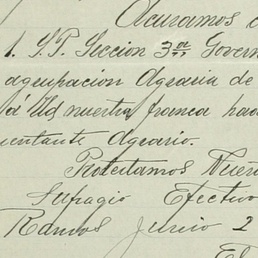 Acusamos
1. S.P. Seccion 3a Govern
agrupacion Agraria de
a Ud nuestra franca
sentante Agrario.
Protestamos Nues
Sufragio Efectivo
Ramos Junio 2
El